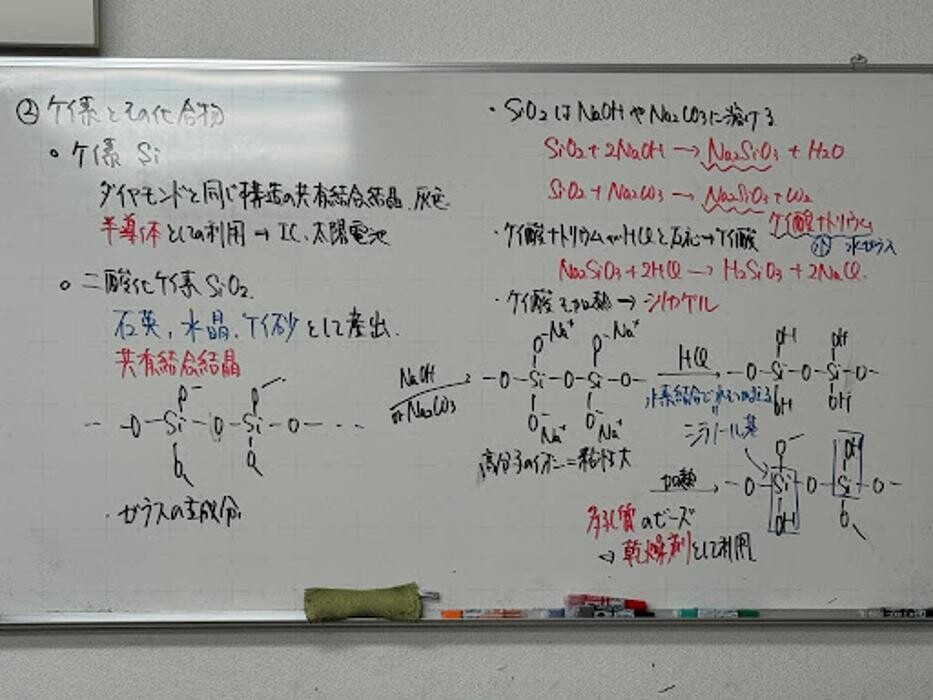 ② ケイ素とその化合物
・ケイ素 Si
ダイヤモンドと同じ構造の共有結合結晶、灰色
半導体としての利用 → IC、太陽電池
○ 二酸化ケイ素 SiO2
石英, 水晶, ケイ砂 として産出.
共有結合結晶
-O-Si-O-Si-O- ...
O- O
O O
・ガラスの主成分
・SiO2はNaOHやNa2CO3に溶ける
SiO2+2NaOH → Na2SiO3 + H2O
SiO2+Na2CO3 → Na2SiO3+CO2
ケイ酸ナトリウム
水ガラス
・ケイ酸ナトリウムがHClと反応→ケイ酸
Na2SiO3+2HCl → H2SiO3+2NaCl.
・ケイ酸を加熱 → シリカゲル
NaOH
or Na2CO3
O-Na+ O-Na+
-O-Si-O-Si-O-
O-Na+ O-Na+
高分子のイオン=粘性大
HCl
水素結合で水をつかまえる
OH OH
-O-Si-O-Si-O-
OH OH
シラノール基
加熱
O- OH
-O-Si-O-Si-O-
OH O
多孔質のビーズ
⇒ 乾燥剤として利用